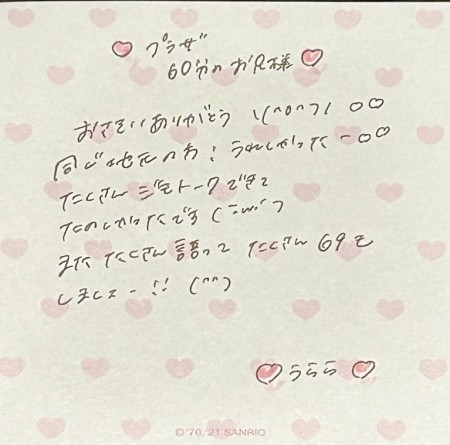 ♡ プラザ
60分のお兄様 ♡
おさそいありがとう \(^o^)/ ○○
同じ地元の方！うれしかったー○○
たくさんジモトークできて
たのしかったです (^ω^)
またたくさん語ってたくさん69を
しましょー!! (^^)
♡ うらら ♡
©'70,'21 SANRIO